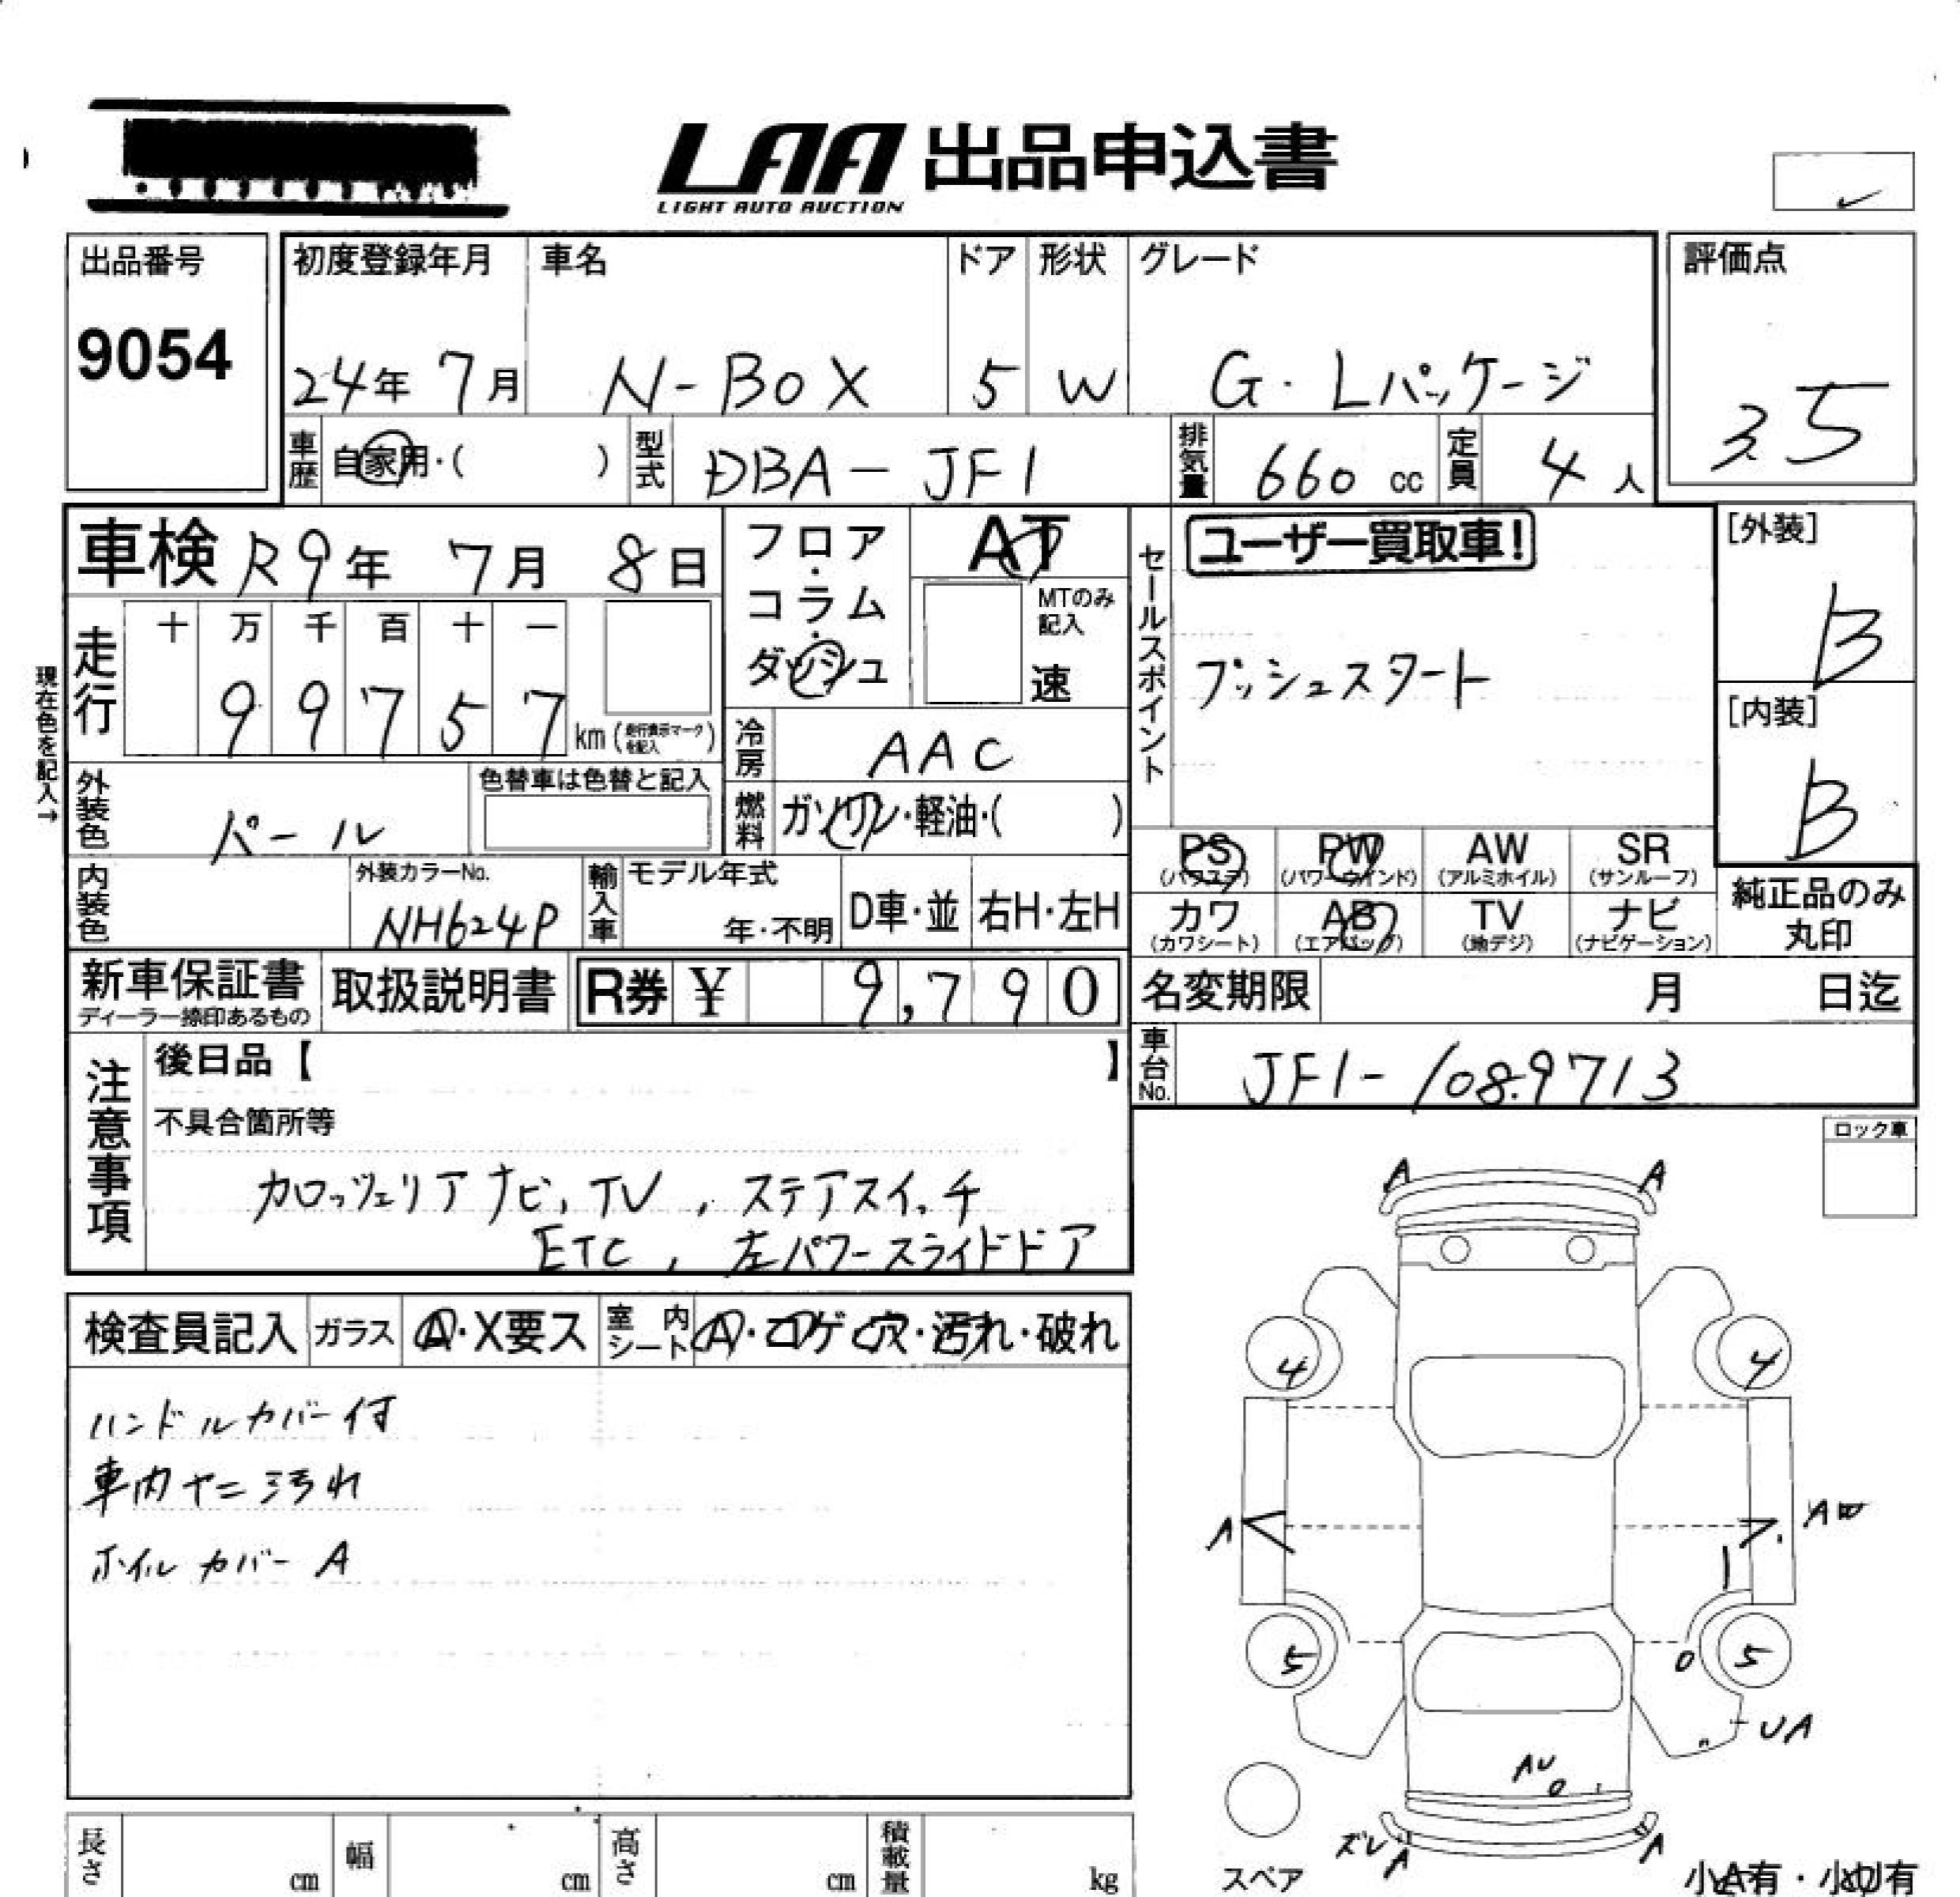 LAA 出品申込書
LIGHT AUTO AUCTION
出品番号
9054
初度登録年月
24年 7月
車名
N-BOX
ドア
5
形状
W
グレード
G・Lパッケージ
評価点
3.5
車歴
自家用・( )
型式
DBA-JF1
排気量
660 cc
定員
4 人
車検 R9年 7月 8日
現在色を記入→
走行
十 万 千 百 十 一
9 9 7 5 7 km (走行表示マークを記入)
外装色
パール
色替車は色替と記入
内装色
外装カラーNo.
NH624P
輸入車
モデル年式
年・不明
D車・並
右H・左H
フロア・コラム・ダッシュ
AT
MTのみ記入
速
冷房
AAC
燃料
ガソリン・軽油・( )
セールスポイント
ユーザー買取車!
プッシュスタート
[外装]
B
[内装]
B
PS (パワステ)
PW (パワーウインド)
AW (アルミホイル)
SR (サンルーフ)
カワ (カワシート)
AB (エアバッグ)
TV (地デジ)
ナビ (ナビゲーション)
純正品のみ丸印
新車保証書
ディーラー捺印あるもの
取扱説明書
R券 ¥ 9,790
名変期限 月 日迄
車台No.
JF1-1089713
注意事項
後日品【 】
不具合箇所等
カロッツェリアナビ, TV , ステアスイッチ
ETC , 左パワースライドドア
ロック車
検査員記入
ガラス
A・X要ス
室内シート
A・コゲ穴・汚れ・破れ
ハンドルカバー付
車内ヤニ汚れ
ホイルカバー A
A A
4 4
A
5 5
UA
AU
ズレ A
A
スペア
小A有・小U有
長さ cm
幅 cm
高さ cm
積載量 kg